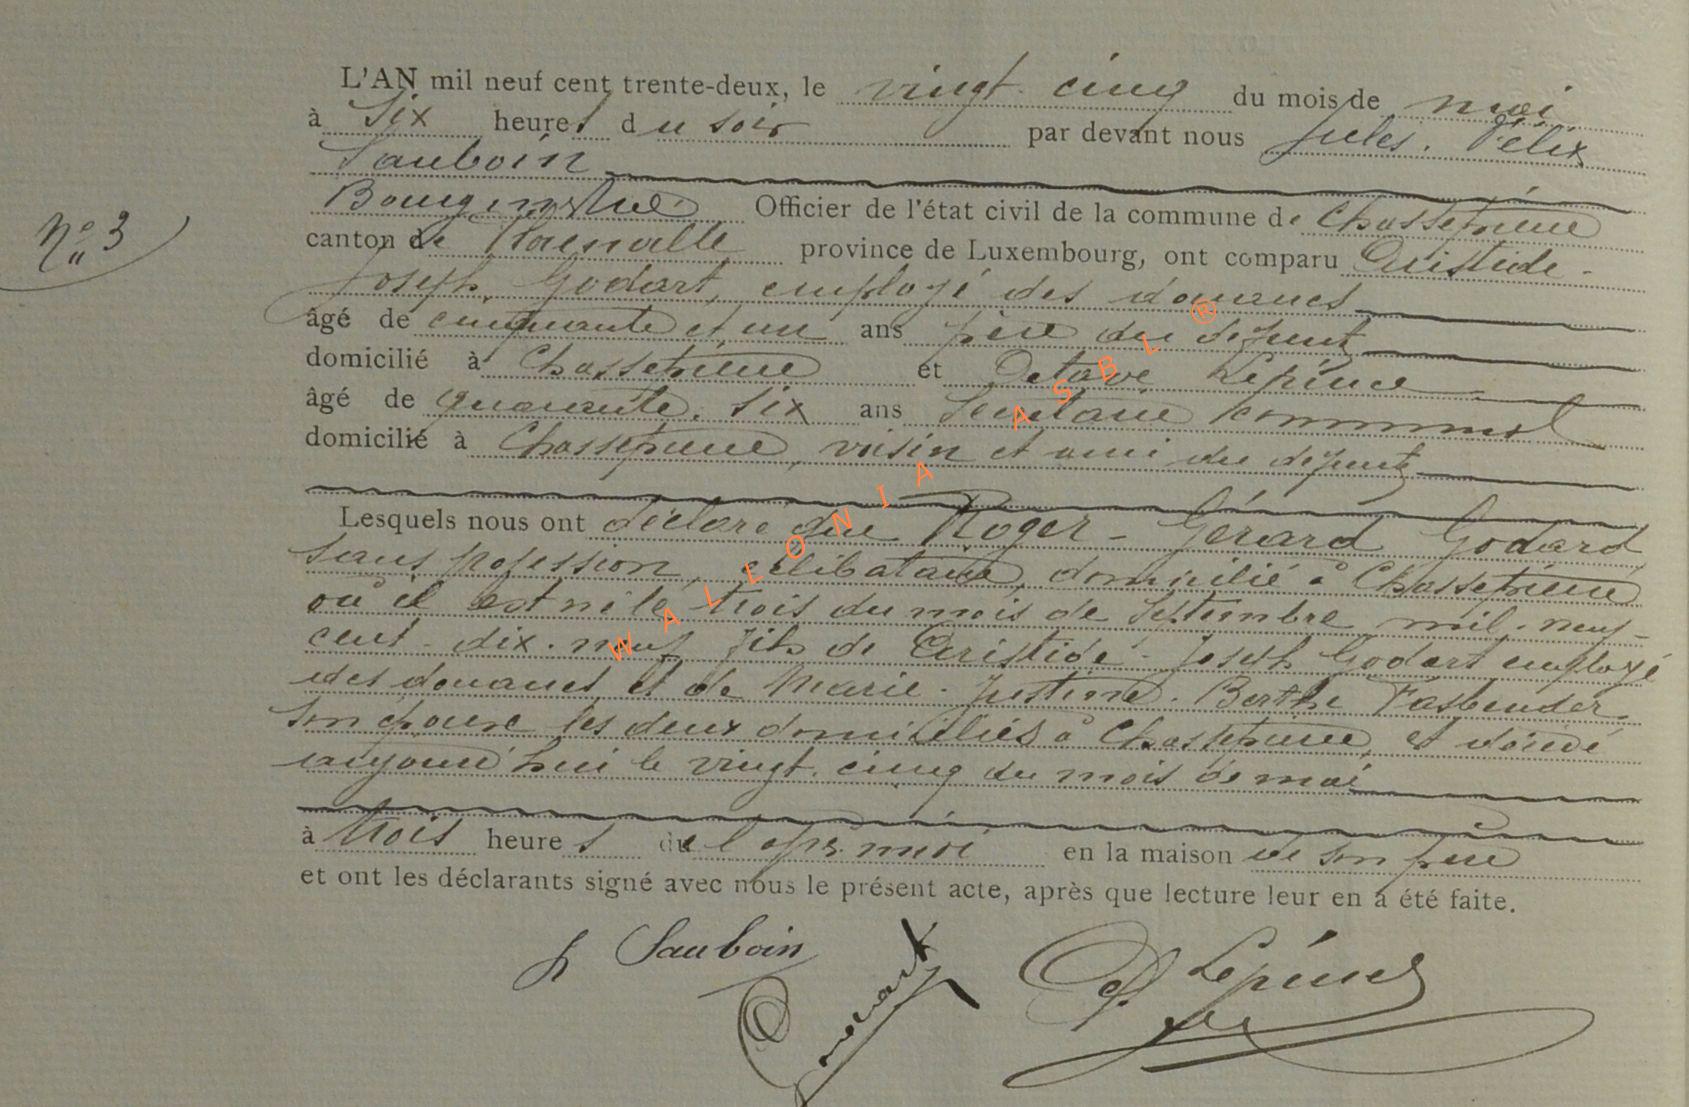 L'AN mil neuf cent trente-deux, le vingt cinq du mois de mai
à Six heures du soir par devant nous Jules. Félix
Sauboin
Bourgmestre Officier de l'état civil de la commune de Chassepierre
canton de Florenville province de Luxembourg, ont comparu Aristide-
Joseph, Godart, employé des douanes
âgé de cinquante et un ans père du défunt
domicilié à Chassepierre et Octave Lepince
âgé de quarante. Six ans Secrétaire communal
domicilié à Chassepierre, voisin et ami du défunt
N° 3
Lesquels nous ont déclaré que Roger - Gérard Godard
sans profession, célibataire, domicilié à Chassepierre
où il est né le trois du mois de Septembre mil. neuf-
cent. dix. neuf fils de Aristide - Joseph Godart employé
des douanes et de Marie. Justine. Berthe Fasbender
son épouse les deux domiciliés à Chassepierre, et décédé
aujourd'hui le vingt. cinq du mois de mai
à trois heures de l'après midi en la maison de son père
et ont les déclarants signé avec nous le présent acte, après que lecture leur en a été faite.
J Sauboin
Godart
Lepince
WALLONIA ASBL ®